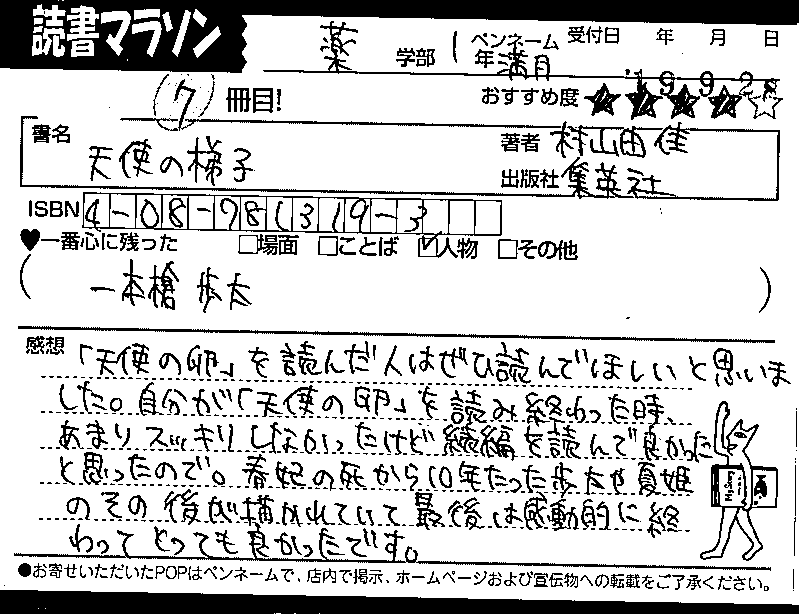 読書マラソン
薬 学部 1年 ペンネーム 満月 受付日 年 月 日
'19 9 28
7 冊目! おすすめ度 ★★★★☆
書名 天使の梯子
著者 村山由佳
出版社 集英社
ISBN 4-08-781319-3
♥一番心に残った □場面 □ことば ☑人物 □その他
(一本槍 歩太)
感想
「天使の卵」を読んだ人はぜひ読んでほしいと思いま
した。自分が「天使の卵」を読み終わった時、
あまりスッキリしなかったけど続編を読んで良かった
と思ったので。春妃の死から10年たった歩太や夏姫
のその後が描かれていて最後は感動的に終
わってとっても良かったです。
●お寄せいただいたPOPはペンネームで、店内で掲示、ホームページおよび宣伝物への転載をご了承ください。